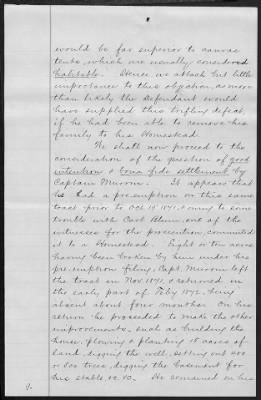 would be far superior to canvas
tents, which are usually considered
habitable. Hence, we attach but little
importance to this objection, as more
than likely the defendant would
have supplied this trifling defect,
if he had been able to remove his
family to his Homestead.
We shall now proceed to the
consideration of the question of good
intention & bona fide settlement by
Captain Mirrom. It appears that
he had a preemption on this same
tract prior to Oct. 19" 1871. & owing to some
trouble with Carl Blum, one of the
witnesses for the prosecution, commuted
it to a Homestead. Eight or ten acres
having been broken by him under his
pre-emption filing, Capt. Mirrom left
the tract in Nov. 1871, & returned in
the early part of Feby 1872. being
absent about four months. On his
return he proceeded to make the other
improvements, such as building the
house, plowing & planting 18 acres of
land, digging the well, setting out 400
or 500 trees, digging the basement for
his stable, &c. &c. He remained on his
9.